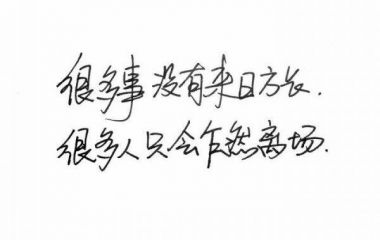 很多事没有来日方长.
很多人只会乍然离场.